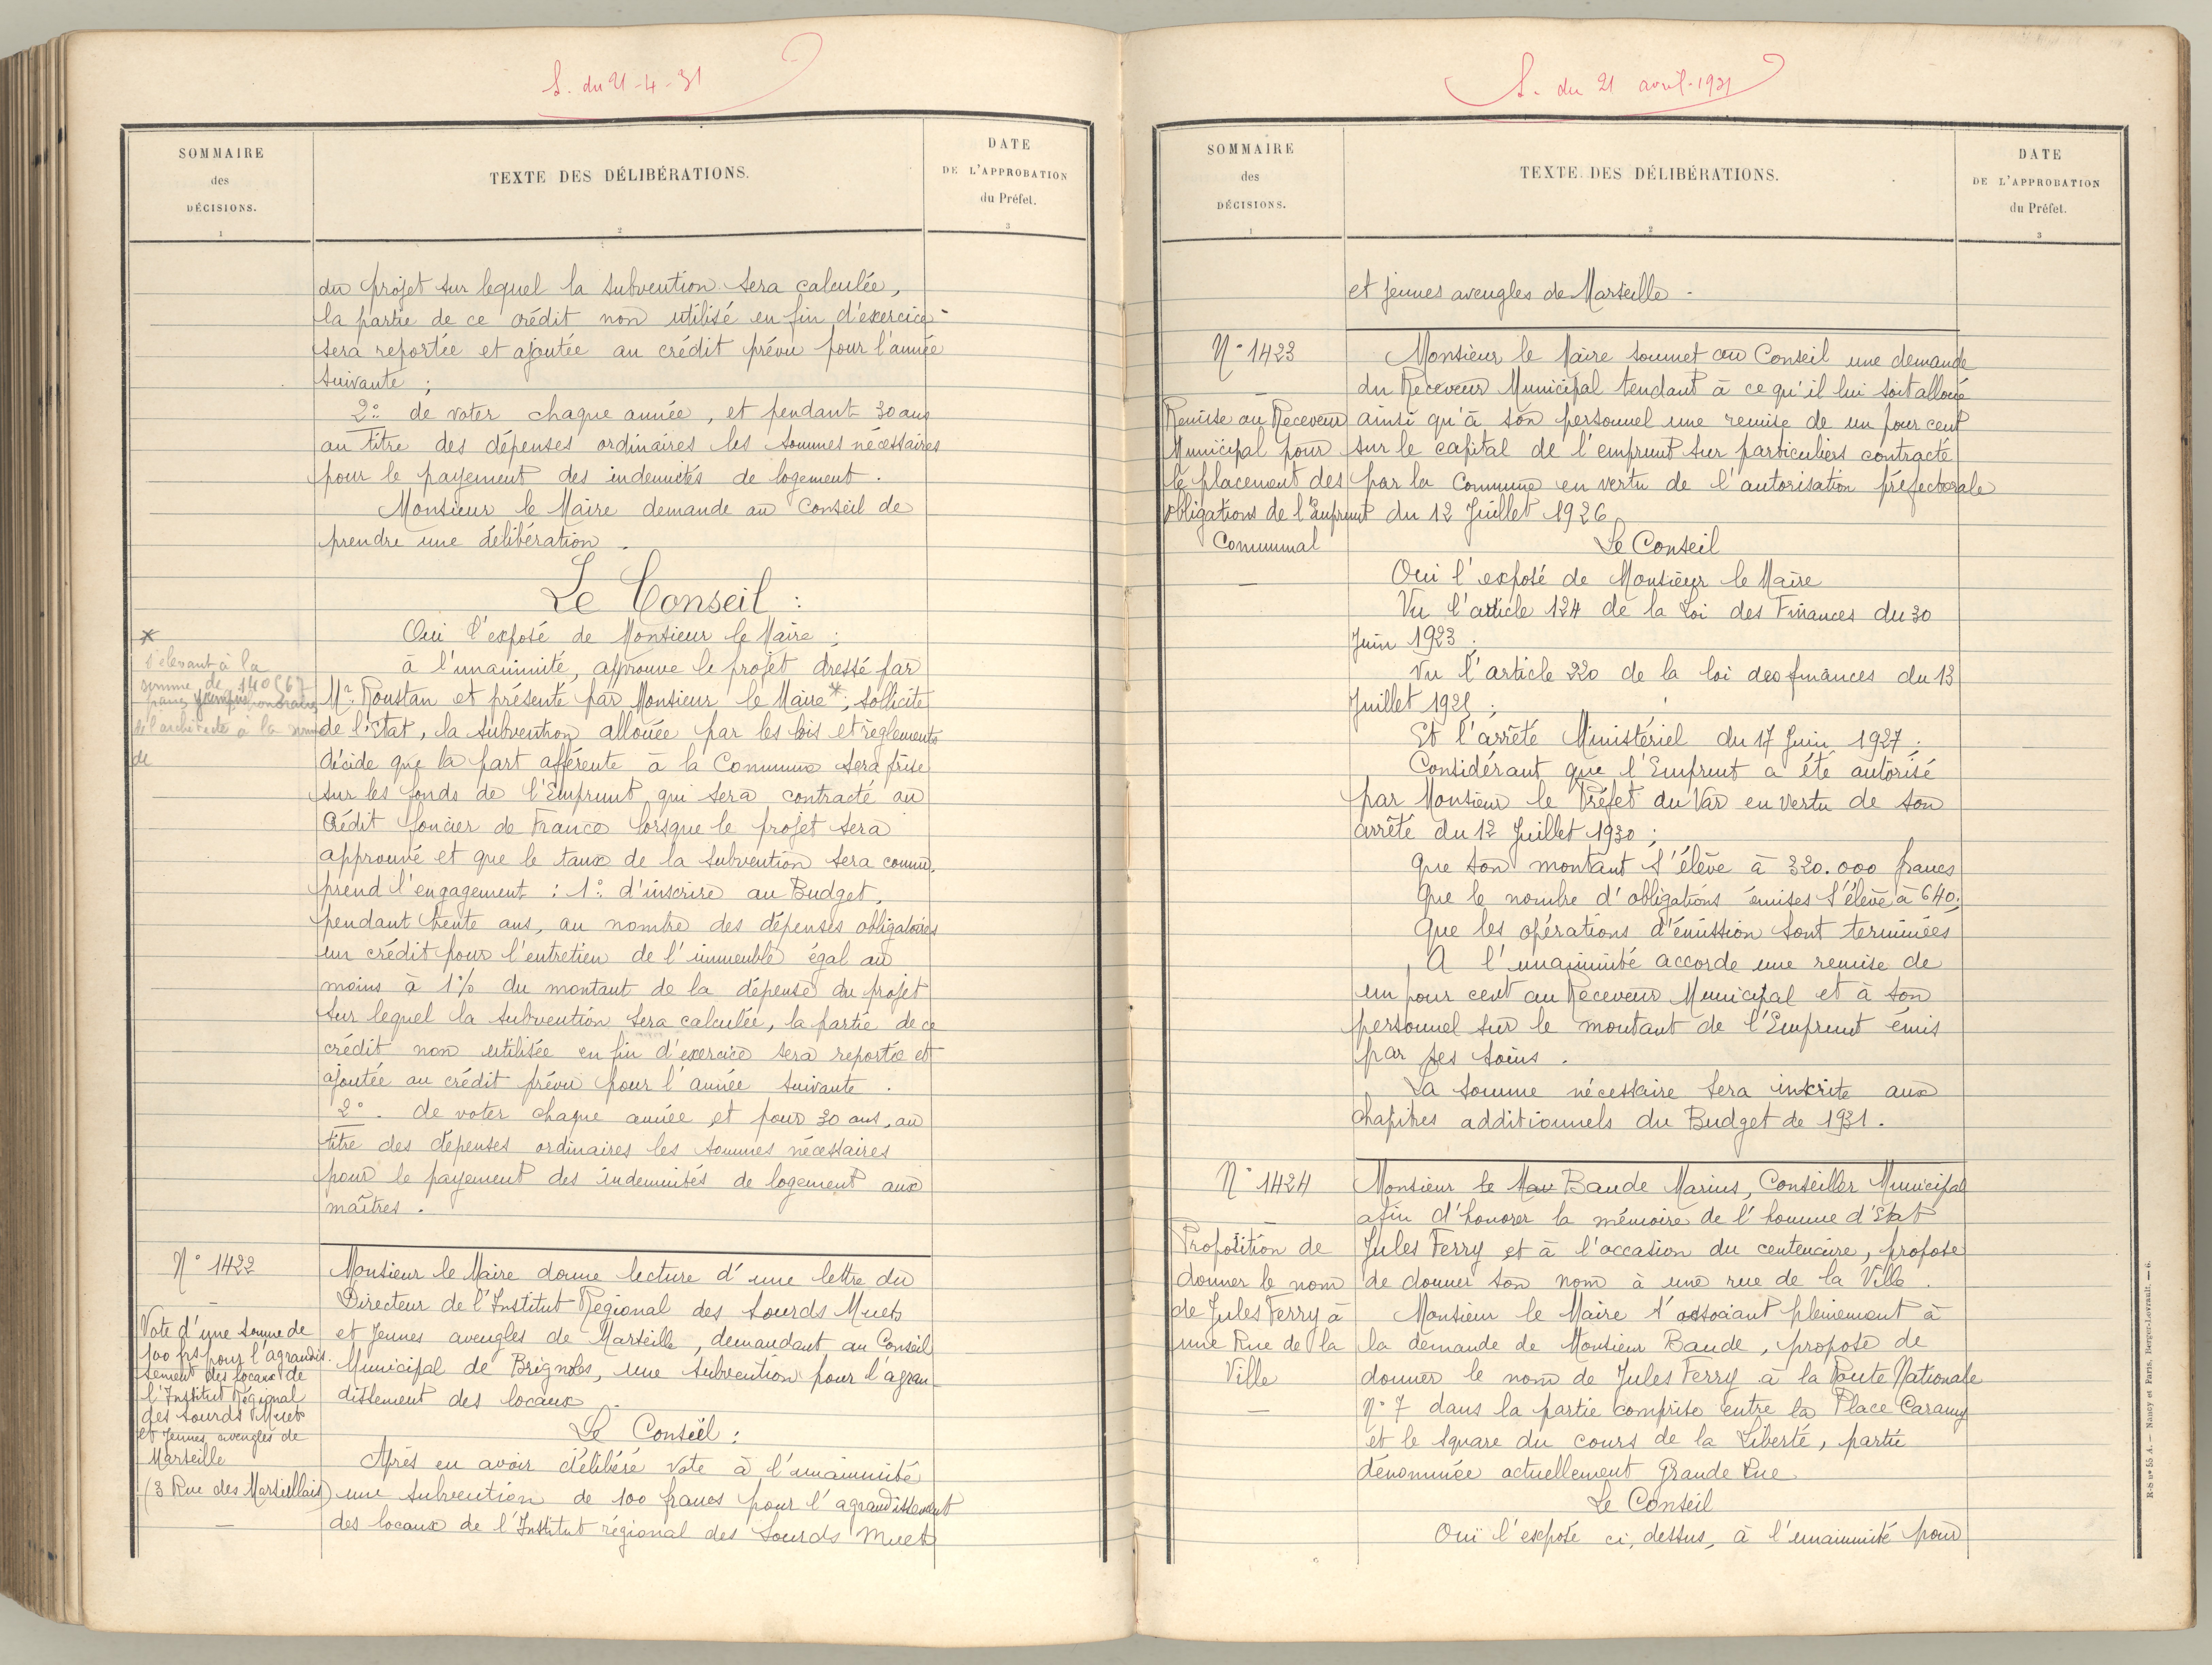 S. du 21-4-31
SOMMAIRE
des
DÉCISIONS.
1
TEXTE DES DÉLIBÉRATIONS.
2
DATE
DE L'APPROBATION
du Préfet.
3
du projet sur lequel la subvention sera calculée,
la partie de ce crédit non utilisé en fin d'exercice
sera reportée et ajoutée au crédit prévu pour l'année
suivante ;
2° de voter chaque année, et pendant 30 ans
au titre des dépenses ordinaires les sommes nécessaires
pour le payement des indemnités de logement.
Monsieur le Maire demande au Conseil de
prendre une délibération.
Le Conseil :
Oui l'exposé de Monsieur le Maire ;
à l'unanimité, approuve le projet dressé par
Mr. Roustan et présenté par Monsieur le Maire*; sollicite
de l'Etat, la subvention allouée par les lois et règlements
décide que la part afférente à la Commune sera prise
sur les fonds de l'Emprunt qui sera contracté au
Crédit foncier de France lorsque le projet sera
approuvé et que le taux de la subvention sera connu.
prend l'engagement : 1° d'inscrire au Budget,
pendant trente ans, au nombre des dépenses obligatoires
un crédit pour l'entretien de l'immeuble égal au
moins à 1% du montant de la dépense du projet
sur lequel la subvention sera calculée, la partie de ce
crédit non utilisée en fin d'exercice sera reportée et
ajoutée au crédit prévu pour l'année suivante.
2°. de voter chaque année et pour 30 ans, au
titre des dépenses ordinaires les sommes nécessaires
pour le payement des indemnités de logement aux
maîtres.
*
s'élevant à la
somme de 140567
francs honoraires
de l'architecte à la somme
de
N° 1422
Vote d'une somme de
100 frs pour l'agrandis-
sement des locaux de
l'Institut Régional
des Sourds Muets
et Jeunes aveugles de
Marseille
(3 Rue des Marseillais)
Monsieur le Maire donne lecture d'une lettre du
Directeur de l'Institut Régional des Sourds Muets
et Jeunes aveugles de Marseille, demandant au Conseil
Municipal de Brignoles, une subvention pour l'agran-
dissement des locaux.
Le Conseil :
Après en avoir délibéré vote à l'unanimité
une subvention de 100 francs pour l'agrandissement
des locaux de l'Institut régional des Sourds Muets
S. du 21 avril-1931
SOMMAIRE
des
DÉCISIONS.
1
TEXTE DES DÉLIBÉRATIONS.
2
DATE
DE L'APPROBATION
du Préfet.
3
et jeunes aveugles de Marseille.
N° 1423
Remise au Receveur
Municipal pour
le placement des
obligations de l'Emprunt
Communal
Monsieur le Maire soumet au Conseil une demande
du Receveur Municipal tendant à ce qu'il lui soit alloué
ainsi qu'à son personnel une remise de un pour cent
sur le capital de l'emprunt sur particuliers contracté
par la Commune en vertu de l'autorisation préfectorale
du 12 Juillet 1926
Le Conseil
Oui l'exposé de Monsieur le Maire
Vu l'article 124 de la Loi des Finances du 30
Juin 1923 ;
Vu l'article 220 de la loi des finances du 13
Juillet 1925 ;
Et l'arrêté Ministériel du 17 Juin 1927 ;
Considérant que l'Emprunt a été autorisé
par Monsieur le Préfet du Var en vertu de son
arrêté du 12 Juillet 1930 ;
que son montant s'élève à 320.000 francs
Que le nombre d'obligations émises s'élève à 640.
Que les opérations d'émission sont terminées
A l'unanimité accorde une remise de
un pour cent au Receveur Municipal et à son
personnel sur le montant de l'Emprunt émis
par ses soins.
La somme nécessaire sera inscrite aux
chapitres additionnels du Budget de 1931.
N° 1424
Proposition de
donner le nom
de Jules Ferry à
une Rue de la
Ville
Monsieur le Baude Marius, Conseiller Municipal
afin d'honorer la mémoire de l'homme d'Etat
Jules Ferry et à l'occasion du centenaire, propose
de donner son nom à une rue de la Ville.
Monsieur le Maire s'associant pleinement à
la demande de Monsieur Baude, propose de
donner le nom de Jules Ferry à la Route Nationale
N° 7 dans la partie comprise entre la Place Caramy
et le Square du cours de la Liberté, partie
dénommée actuellement Grande Rue
Le Conseil
Ouï l'exposé ci, dessus, à l'unanimité pour
R-S n° 55 A. — Nancy et Paris, Berger-Levrault. — 6.